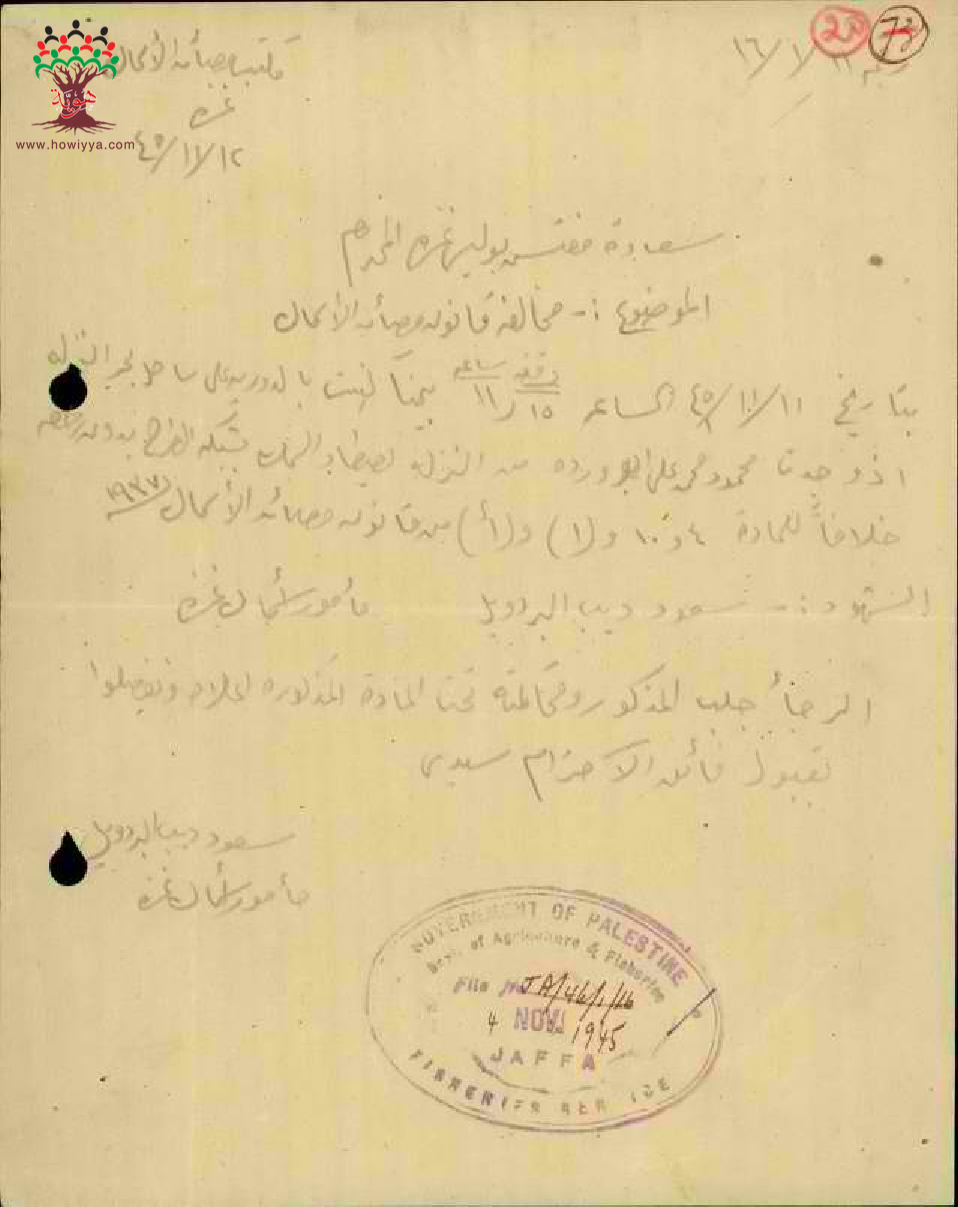 73
25
١٦/١/
مكتب مصائد الأسماك
غزة
٤٥/١١/١٢
هوية
www.howiyya.com
سعادة مفتش بوليس غزة المحترم
الموضوع :- مخالفة قانون مصائد الأسماك
بتاريخ ١١/ /٤٥ الساعة ساعة ١١ دقيقة ١٥ بينما كنت بالدورية على ساحل بحر النزلة
اذ وجدت محمود محمد علي ابو ورده من النزلة يصطاد السمك بشبكة الطرح بدون رخصة
خلافاً للمادة ٤ و ١٠ و (١) و (أ) من قانون مصائد الأسماك ١٩٣٧
الشهود :- سعود ديب البردويل مأمور أسماك غزة
الرجأ جلب المذكور ومحاكمته تحت المادة المذكورة اعلاه وتفضلوا
بقبول فائق الاحترام سيدي
سعود ديب البردويل
مأمور أسماك غزة
GOVERNMENT OF PALESTINE
Dept. of Agriculture & Fisheries
File No JA/46/1/16
4 NOV 1945
JAFFA
FISHERIES SERVICE